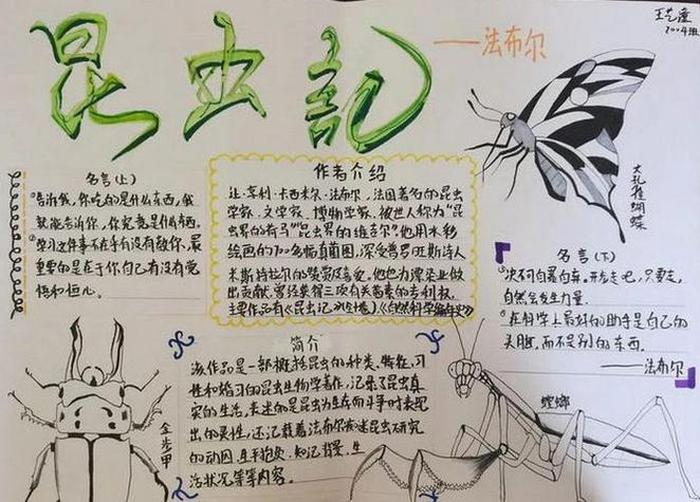 昆虫記
——法布尔
2004班
名言(上)
①告诉我，你吃的是什么东西，我
就能告诉你，你究竟是什么东西。
②学习这件事不在乎有没有人教你，最
重要的是在于你自己有没有觉
悟和恒心。
作者介绍
让·亨利·卡西米尔·法布尔，法国著名的昆虫
学家、文学家、博物学家，被世人称为"昆
虫界的荷马""昆虫界的维吉尔"。他用水彩
绘画的700多幅真菌图，深受普罗旺斯诗人
米斯特拉尔的赞赏及喜爱。他也为漂染业做
出贡献，曾经获得三项有关茜素的专利权，
主要作品有《昆虫记》《自然科学编年史》
大孔雀蝴蝶
名言(下)
自然会发生力量
②在科学上最好的助手是自己的
头脑，而不是别的东西。
——法布尔
简介
该作品是一部概括昆虫的种类、特征、习
性和婚习的昆虫生物学著作，记录了昆虫真
实的生活，表述的是昆虫为生存而斗争时表现
出的灵性，还记载着法布尔痴迷昆虫研究
的动因、生平抱负、知识背景、生
活状况等等内容。
金步甲
螳螂